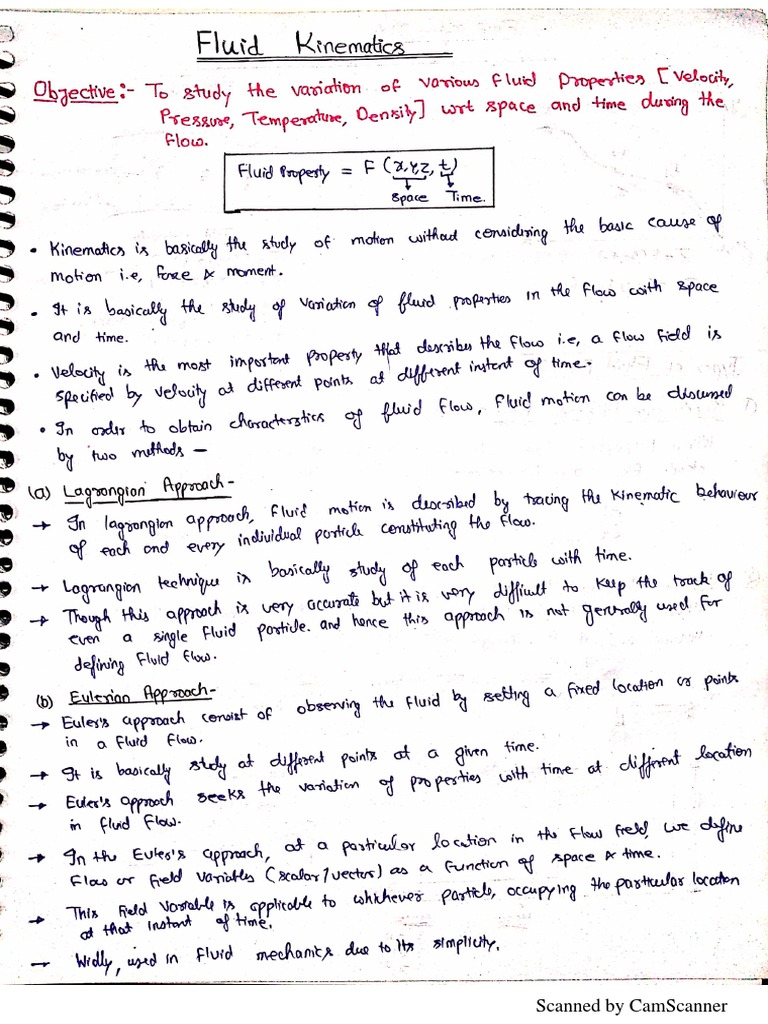 Fluid Kinematics
Objective:- To study the variation of various fluid properties [Velocity,
Pressure, Temperature, Density] wrt space and time during the
flow.
Fluid Property = F (x,y,z, t)
space Time.
• Kinematics is basically the study of motion without considering the basic cause of
motion i.e, force & moment.
• It is basically the study of variation of fluid properties in the flow with space
and time.
• Velocity is the most important property that describes the flow i.e, a flow field is
specified by velocity at different points at different instent of time.
• In order to obtain characterstics of fluid flow, fluid motion can be discussed
by two methods –
(a) Lagrangian Approach-
→ In lagrangion approach, fluid motion is described by tracing the kinematic behaviour
of each and every individual particle constituting the flow.
→ Lagrangion technique is basically study of each particle with time.
→ Though this approach is very accurate but it is very difficult to keep the track of
even a single fluid particle. and hence this approach is not generally used for
defining fluid flow.
(b) Eulerian Approach-
→ Euler's approach consist of observing the fluid by setting a fixed location or points
in a fluid flow.
→ It is basically study at different points at a given time.
→ Euler's approach seeks the variation of properties with time at different location
in fluid flow.
→ In the Euler's approach, at a particular location in the flow field, we define
flow or field variables (scalar/vector) as a function of space & time.
→ This field variable is applicable to whichever particle, occupying the particular location
at that instant of time.
→ Widly, used in fluid mechanics due to its simplicity.
Scanned by CamScanner